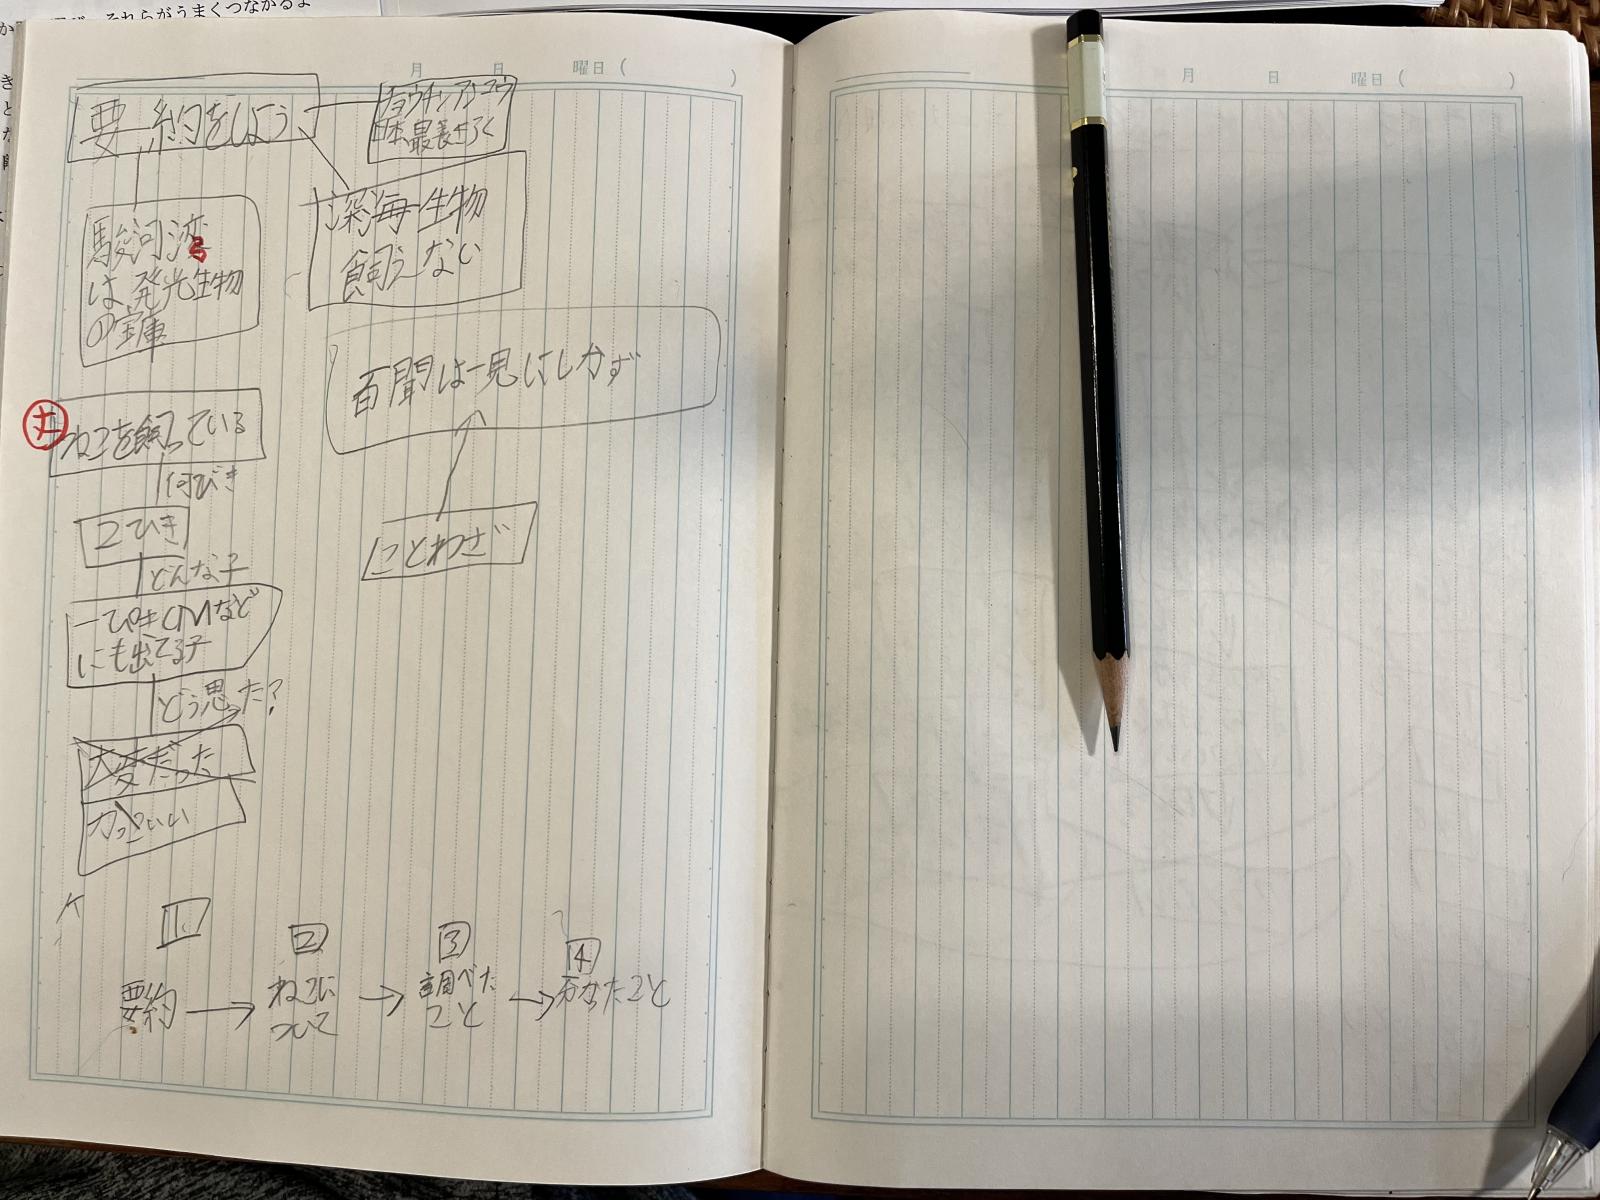 それらがうまくつながるよ
月 日 曜日( )
月 日 曜日( )
要約をしよう
チョウチンアンコウ
日本最長
駿河湾
は発光生物
の宝庫
深海生物
飼えない
百聞は一見にしかず
ことわざ
ねこを飼っている
何びき
2ひき
どんな子
一ぴきCMなど
にも出てる子
どう思った?
大変だった
かっこいい
1
要約
→
2
ねこに
ついて
→
3
調べた
こと
→
4
分かたこと